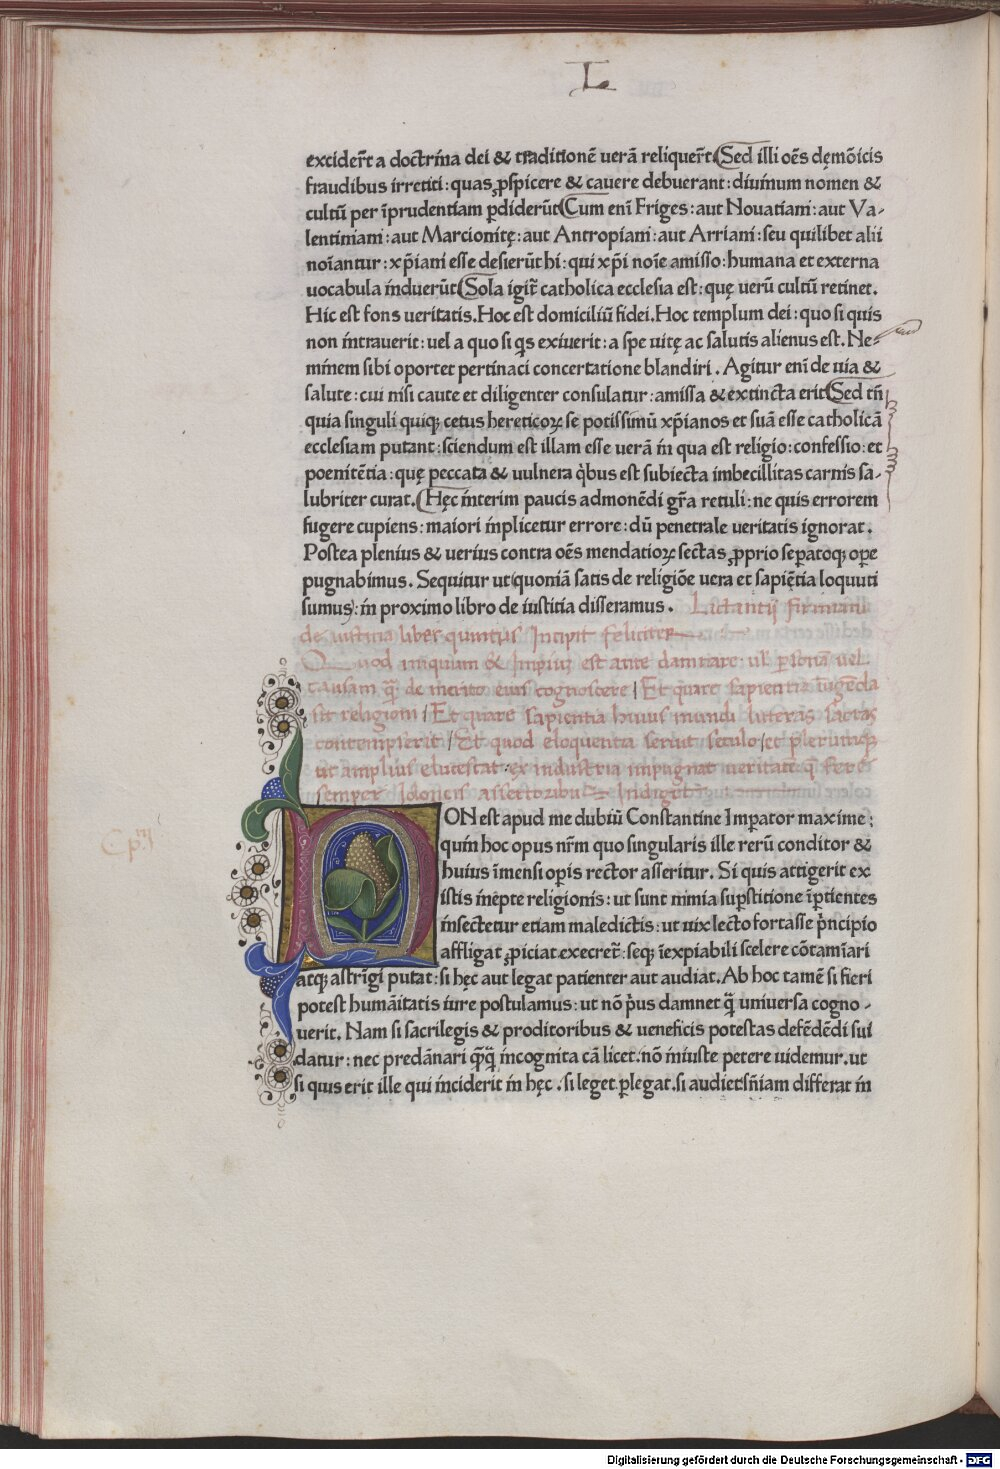 L
exciderr̃t a doctrína dei & traditionē verā reliquer̃t. Sed illi oēs dęmōicis
fraudibus irretiti: quas ꝓspicere & cauere debuerant: diuínum nomen &
cultū per īprudentiam ꝑdiderūt Cum eni Friges: aut Nouatiani: aut Va-
lentiniani: aut Marcionitę: aut Antropiani: aut Arriani: seu quilibet alii
noīantur: xp̄iani esse desierūt hi: qui xp̄i noīe amisso: humana et externa
uocabula índuerūt Sola igit̃ catholica ecclesia est: quę uerū cultū retinet.
Hic est fons ueritatis. Hoc est domiciliū fidei. Hoc templum dei: quo si quis
non íntrauerit: uel a quo si qͥs exiuerit: a spe uitę ac salutis alienus est. Ne-
mínem sibi oportet pertinaci concertatione blandiri. Agitur eni de uia &
salute: cui nisi caute et diligenter consulatur: amissa & extincta erit Sed tn̄
quia singuli quiqꝫ cetus hereticoꝝ se potissimū xp̄ianos et suā esse catholicā
ecclesiam putant: sciendum est illam esse uerā ín qua est religio: confessio: et
poenitētia: quę peccata & uulnera q̇bus est subiecta imbecillitas carnis sa-
lubriter curat. Hęc ínterim paucis admonēdi gr̃a retuli: ne quis errorem
fugere cupiens: maiori ínplicetur errore: dū penetrale ueritatis ignorat.
Postea plenius & uerius contra oēs mendatioꝝ sectas ꝓprio seꝑatoqꝫ oꝑe
pugnabimus. Sequitur ut (quoniā satis de religiōe uera et sapiētia loquuti
sumus): ín proximo libro de iustitia disseramus. Lactantij firmiani
de iusticia liber quintus Incipit feliciter
Quod iniquum & Impiuʒ est ante damnare: ul' ꝑsonā uel
causam qͣ de merito eius cognoscere / Et quare sapientia iūgēda
sit religioni / Et quare sapientia huius mundi litteras sacras
contempserit / Et quod eloquentia seruit seculo / et plerumqꝫ
ut amplius elucescat: ex industria impugnat ueritatē q̄ fere
semper Idoneis assertoribus Indiget
Cp. iij
NON est apud me dubiū Constantine Imꝑator maxime:
quín hoc opus nr̄m quo singularis ille rerū conditor &
huius īmensi oꝑis rector asseritur. Si quis attigerit ex
istis ínepte religionis: ut sunt nimia suꝑstitione īpatientes
ínsectetur etiam maledictis: ut uix lecto fortasse p̍ncipio
affligat ꝓpiciat execret̃: seqꝫ īexpiabili scelere cōtamīari
atqꝫ astrīgi putat: si hęc aut legat patienter aut audiat. Ab hoc tamē si fieri
potest humāitatis iure postulamus: ut nō p̍us damnet qͣ̄ uniuersa cogno-
uerit. Nam si sacrilegis & proditoribus & ueneficis potestas defēdēdi sui
datur: nec predānari q̄qͣ̄ íncognita cā licet. nō íniuste petere uidemur. ut
si quis erit ille qui ínciderit ín hęc. si leget ꝑlegat. si audiet sn̄iam differat ín
Digitalisierung gefördert durch die Deutsche Forschungsgemeinschaft - DFG